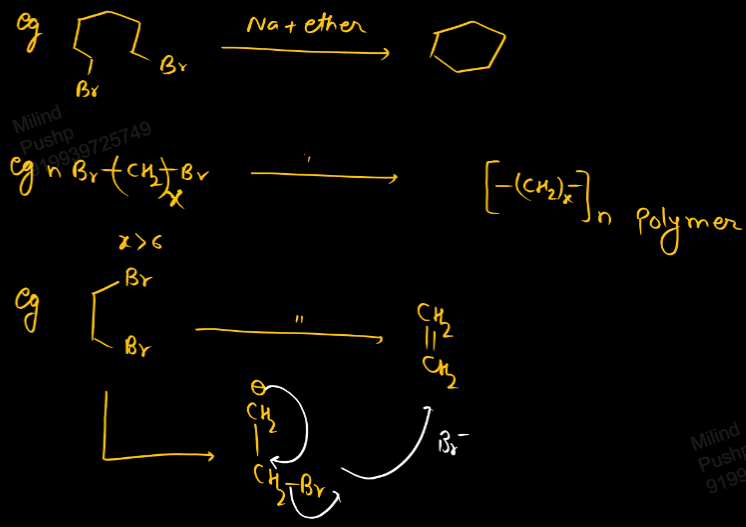 eg Na + ether
Br
Br
Milind
Pushp
919939725749
eg n Br-(CH2)x-Br " [-(CH2)x-]n Polymer
x>6
eg Br
Br
" CH2
||
CH2
⊖
CH2
|
CH2-Br
Br⁻
Milind
Pushp
9199